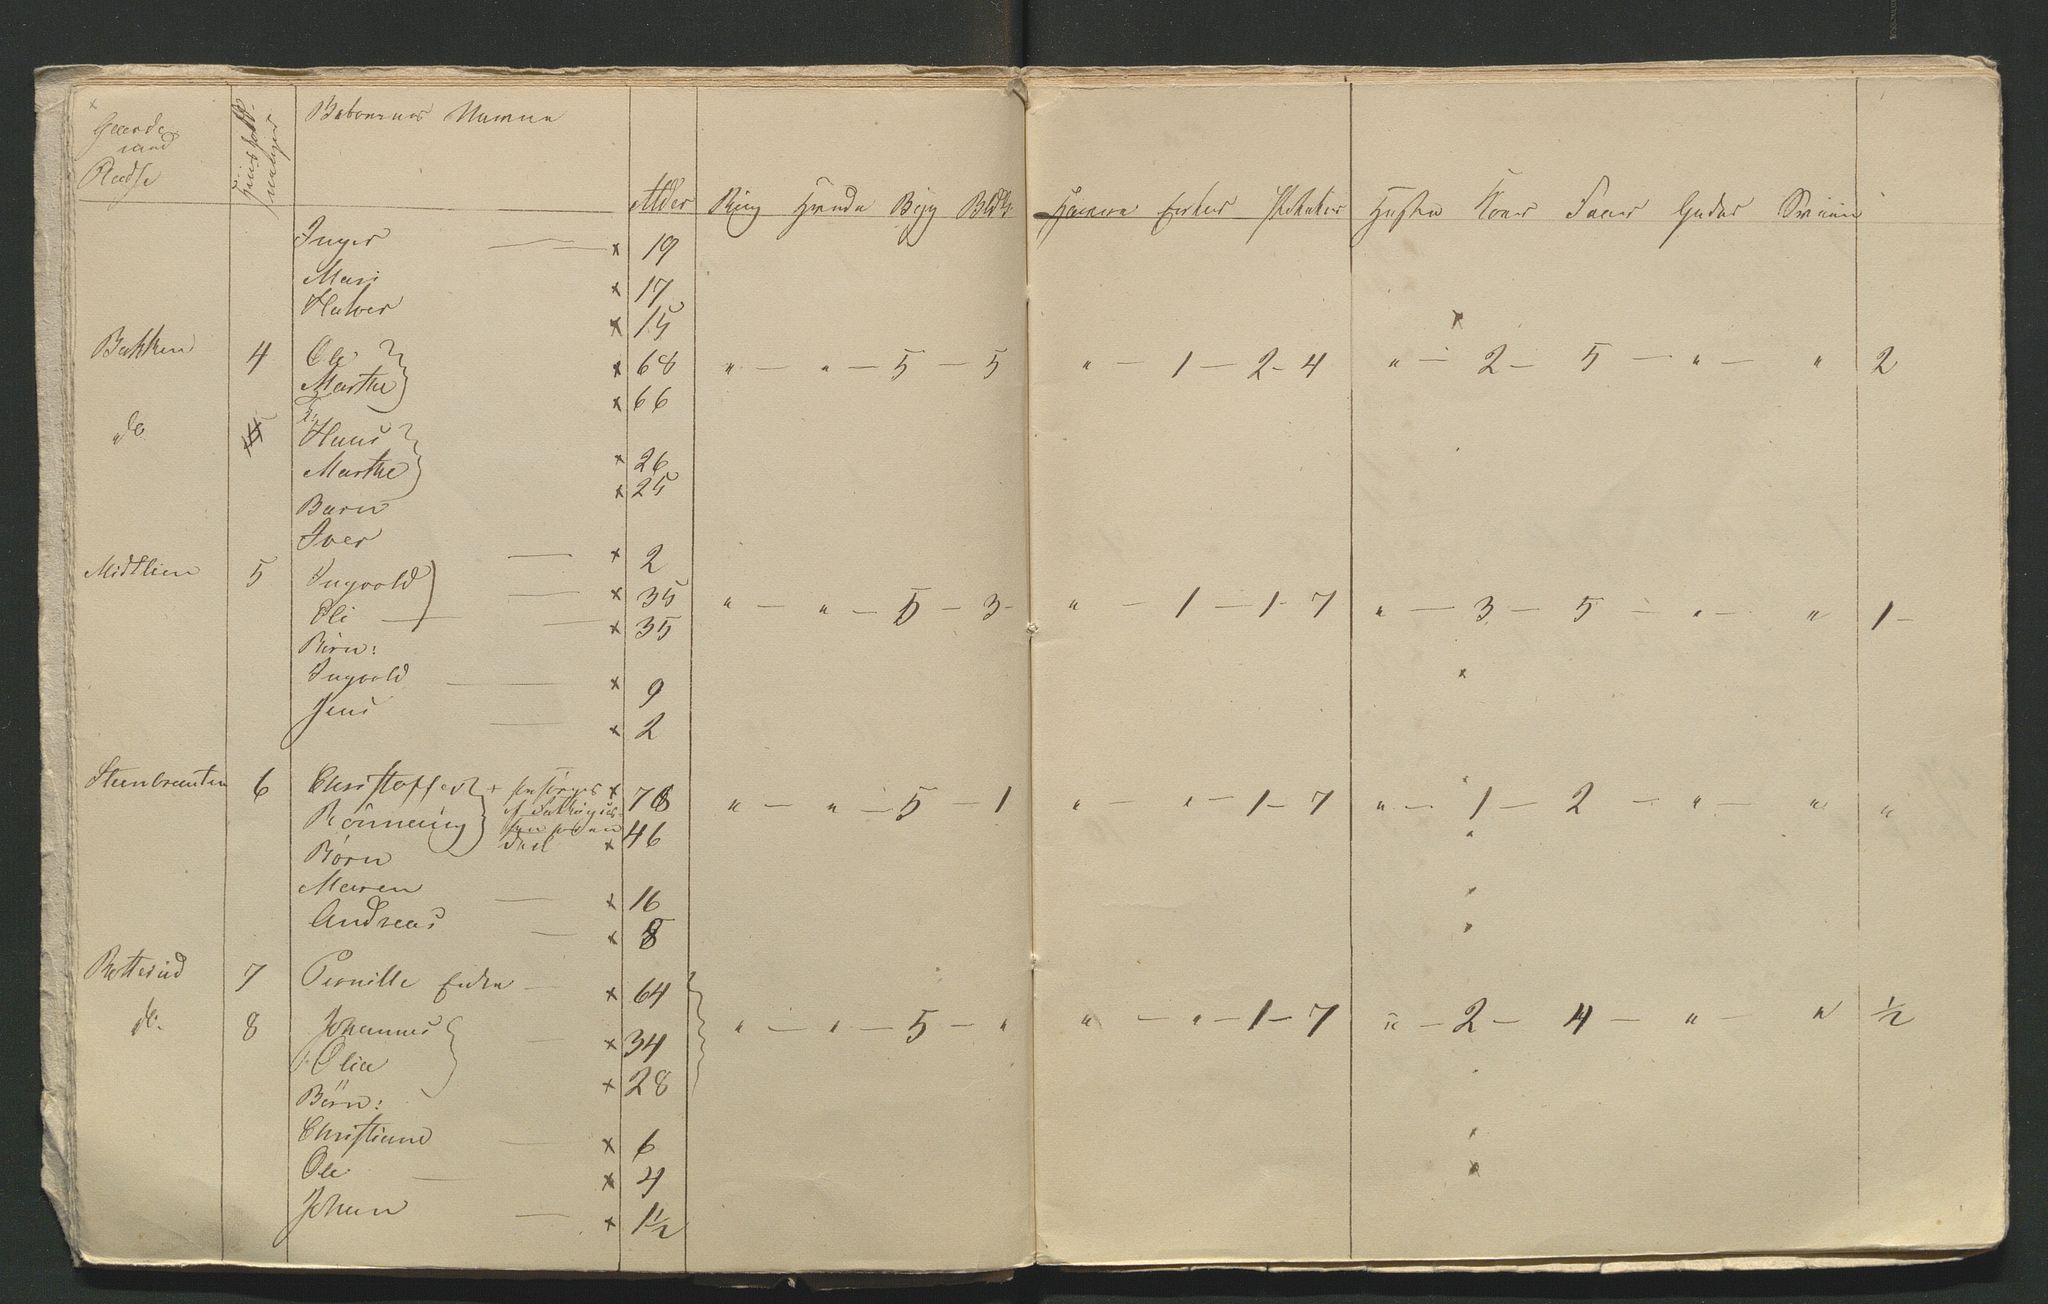 Gaarde
Pladse
Beboernes Navne
Alder Rug Hvede Byg Bl.k. Havre Erter Poteter Heste Koer Faar Geder Sviin
Inger x 19
Mari x 17
Halvor x 15
Bakken 4 Ole x 68 " — " — 5 — 5 " — 1 — 2 - 4 " — 2 — 5 — " — " 2
Marthe x 66
do 4 Hans x 26
Marthe x 25
Barn
Iver x 2
Midtlien 5 Ingvold x 35 " — " — 5 — 3 - " — 1 — 1 - 7 " — 3 — 5 — " — " 1 -
Eli x 35
Børn:
Ingvold x 9
Jens x 2
Steenbraaten 6 Christoffer + forsørges x 78 " — " — 5 — 1 " — " — 1 - 7 " — 1 — 2 — " — " "
Rönnaug af Fattigvæs- 46
Børn deel x
Maren x 16
Andreas x 8
Botterud 7 Pernille Enke x 64
do. 8 Johannes x 34 " — " — 5 — " " — " — 1 - 7 " — 2 — 4 — " — " ½
Olia x 28
Børn:
Christiane x 6
Ole x 4
Johan x 1½